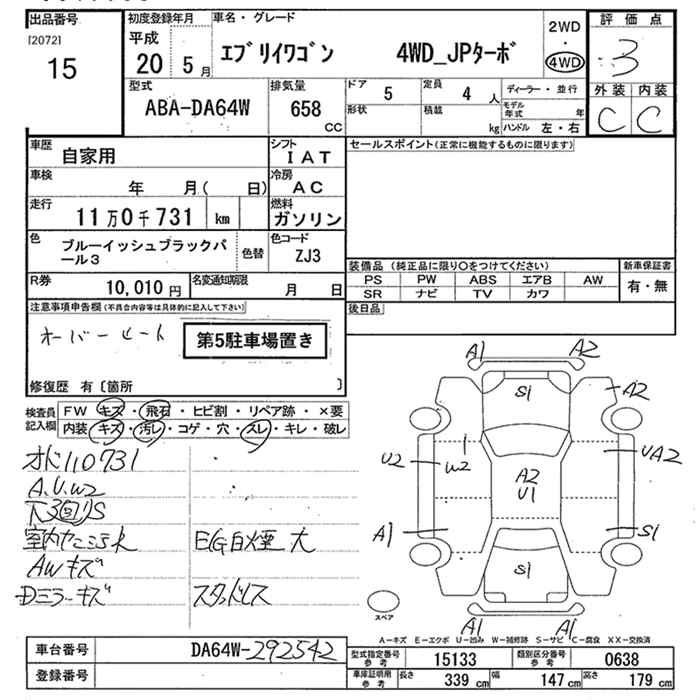 出品番号
[2072]
15
初度登録年月
平成
20 5月
車名・グレード
エブリイワゴン 4WD_JPターボ
2WD
・
4WD
評価点
3
外装 内装
C C
型式
ABA-DA64W
排気量
658
CC
ドア 5
定員 4 人
形状
積載 kg
ディーラー・並行
モデル年式 年
ハンドル 左・右
車歴
自家用
シフト
IAT
車検
年 月( 日)
冷房
AC
走行
11万0千731 km
燃料
ガソリン
色
ブルーイッシュブラックパール3
色替
色コード
ZJ3
R券
10,010 円
名変通知期限
月 日
セールスポイント(正常に機能するものに限ります)
装備品 (純正品に限り○をつけてください)
PS PW ABS エアB AW
SR ナビ TV カワ
新車保証書
有・無
後日品
注意事項申告欄(不具合内容等は具体的に記入して下さい)
オーバーヒート
第5駐車場置き
修復歴 有〔箇所 〕
検査員記入欄
FW キズ・飛石・ヒビ割・リペア跡・×要
内装 キズ・汚レ・コゲ・穴・スレ・キレ・破レ
110731
A.U.W2
下3回S
EG白煙大
AWキズ
Dミラーキズ
スタッドレス
A1 A2
S1
A2
U2
W2
A2
U1
UA2
A1
S1
S1
A1 A1
スペア
A―キズ E―エクボ U―凹み W―補修跡 S―サビ C―腐食 XX―交換済
車台番号
DA64W-292542
登録番号
型式指定番号 参考
15133
類別区分番号 参考
0638
車庫証明用 参考
長さ 339 cm
幅 147 cm
高さ 179 cm